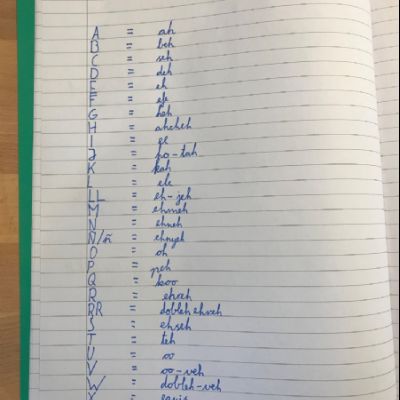 A = ah
B = beh
C = seh
D = deh
E = eh
F = efe
G = heh
H = ahcheh
I = ee
J = ho-tah
K = kah
L = ele
LL = eh-jeh
M = ehmeh
N = ehneh
Ñ/ñ = ehnyeh
O = oh
P = peh
Q = koo
R = ehreh
RR = dobleh ehreh
S = ehseh
T = teh
U = oo
V = oo-veh
W = dobleh-veh
X =